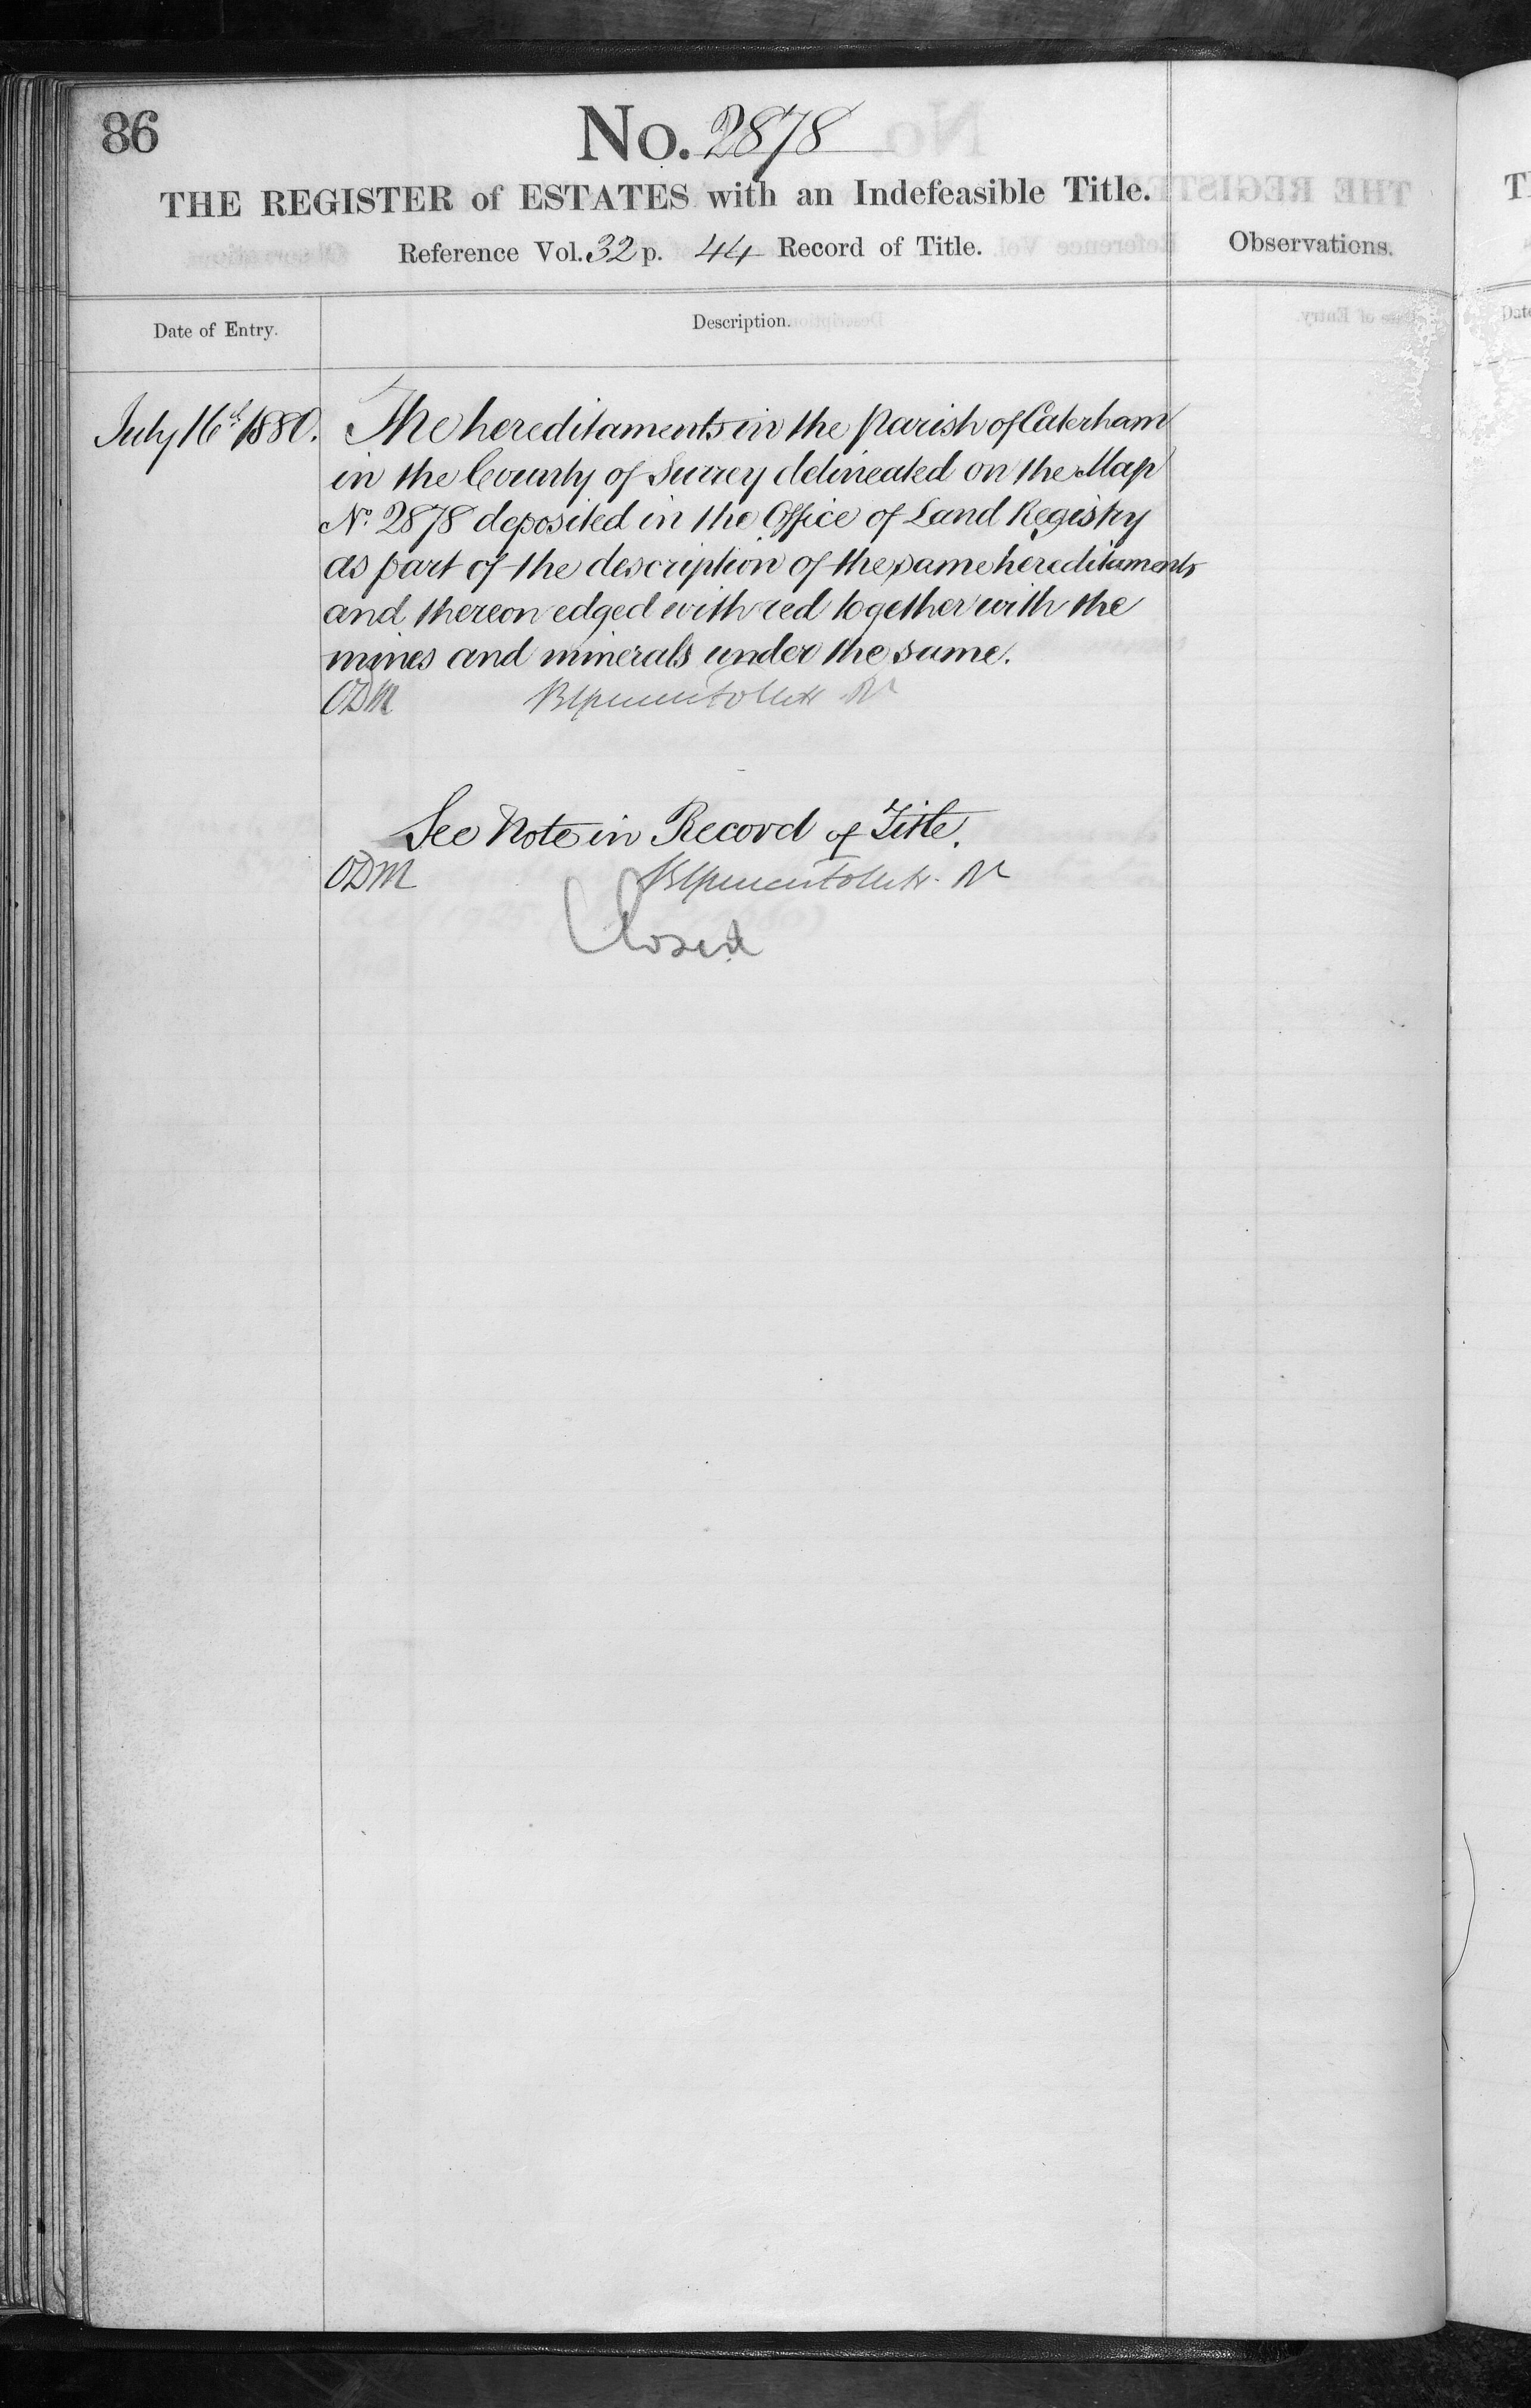 86
No. 2878
THE REGISTER of ESTATES with an Indefeasible Title.
Reference Vol. 32 p. 44 Record of Title.
Observations.
Date of Entry.
Description.
July 16th 1880.
The hereditaments in the parish of Caterham
in the County of Surrey delineated on the Map
No. 2878 deposited in the Office of Land Registry
as part of the description of the same hereditaments
and thereon edged with red together with the
mines and minerals under the same.
ODM
See Note in Record of Title.
ODM
Closed